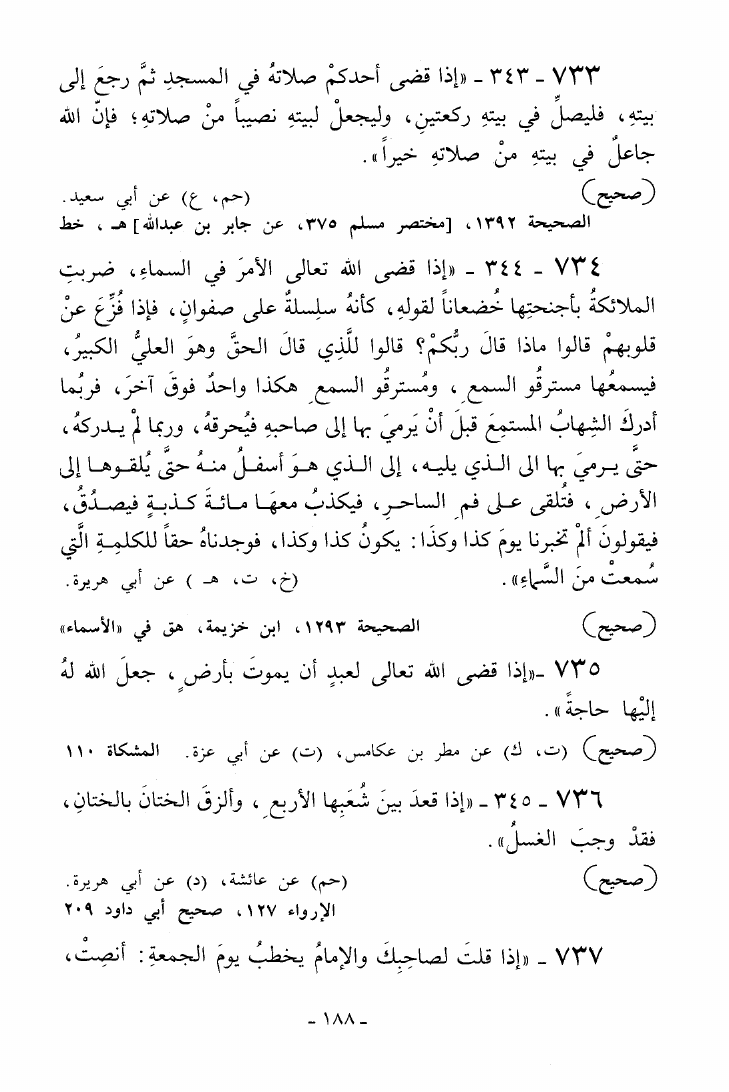 ٧٣٣ - ٣٤٣ - «إذا قضى أحدكمْ صلاتهُ في المسجدِ ثمَّ رجعَ إلى
بيتهِ، فليصلِّ في بيتهِ ركعتينِ، وليجعلْ لبيتهِ نصيباً منْ صلاتهِ؛ فإنّ الله
جاعلٌ في بيتهِ منْ صلاتهِ خيراً».
(صحيح) (حم، ع) عن أبي سعيد.
الصحيحة ١٣٩٢، [مختصر مسلم ٣٧٥، عن جابر بن عبدالله] هـ ، خط
٧٣٤ - ٣٤٤ - «إذا قضى الله تعالى الأمرَ في السماءِ، ضربتِ
الملائكةُ بأجنحتِها خُضعاناً لقولهِ، كأنهُ سلسلةٌ على صفوانٍ، فإذا فُزِّعَ عنْ
قلوبهمْ قالوا ماذا قالَ ربُّكمْ؟ قالوا للَّذِي قالَ الحقَّ وهوَ العليُّ الكبيرُ،
فيسمعُها مسترقُو السمعِ ، ومُسترقُو السمعِ هكذا واحدٌ فوقَ آخرَ، فربُما
أدركَ الشهابُ المستمِعَ قبلَ أنْ يَرميَ بها إلى صاحبهِ فيُحرقهُ، وربما لمْ يدركهُ،
حتَّى يرميَ بها الى الذي يليه، إلى الذي هوَ أسفلُ منهُ حتَّى يُلقوها إلى
الأرضِ ، فتُلقى على فمِ الساحرِ، فيكذبُ معهَا مائةَ كذبةٍ فيصدُقُ،
فيقولونَ ألمْ تخبرنا يومَ كذا وكذَا: يكونُ كذا وكذا، فوجدناهُ حقاً للكلمةِ الَّتي
سُمعتْ منَ السَّماءِ». (خ، ت، هـ ) عن أبي هريرة.
(صحيح) الصحيحة ١٢٩٣، ابن خزيمة، هق في «الأسماء»
٧٣٥ -«إذا قضى الله تعالى لعبدٍ أن يموتَ بأرضٍ ، جعلَ الله لهُ
إليْها حاجةً».
(صحيح) (ت، ك) عن مطر بن عكامس، (ت) عن أبي عزة. المشكاة ١١٠
٧٣٦ - ٣٤٥ - «إذا قعدَ بينَ شُعَبِها الأربعِ ، وألزقَ الختانَ بالختانِ،
فقدْ وجبَ الغسلُ».
(صحيح) (حم) عن عائشة، (د) عن أبي هريرة.
الإرواء ١٢٧، صحيح أبي داود ٢٠٩
٧٣٧ - «إذا قلتَ لصاحبِكَ والإمامُ يخطبُ يومَ الجمعةِ: أنصِتْ،
- ١٨٨ -